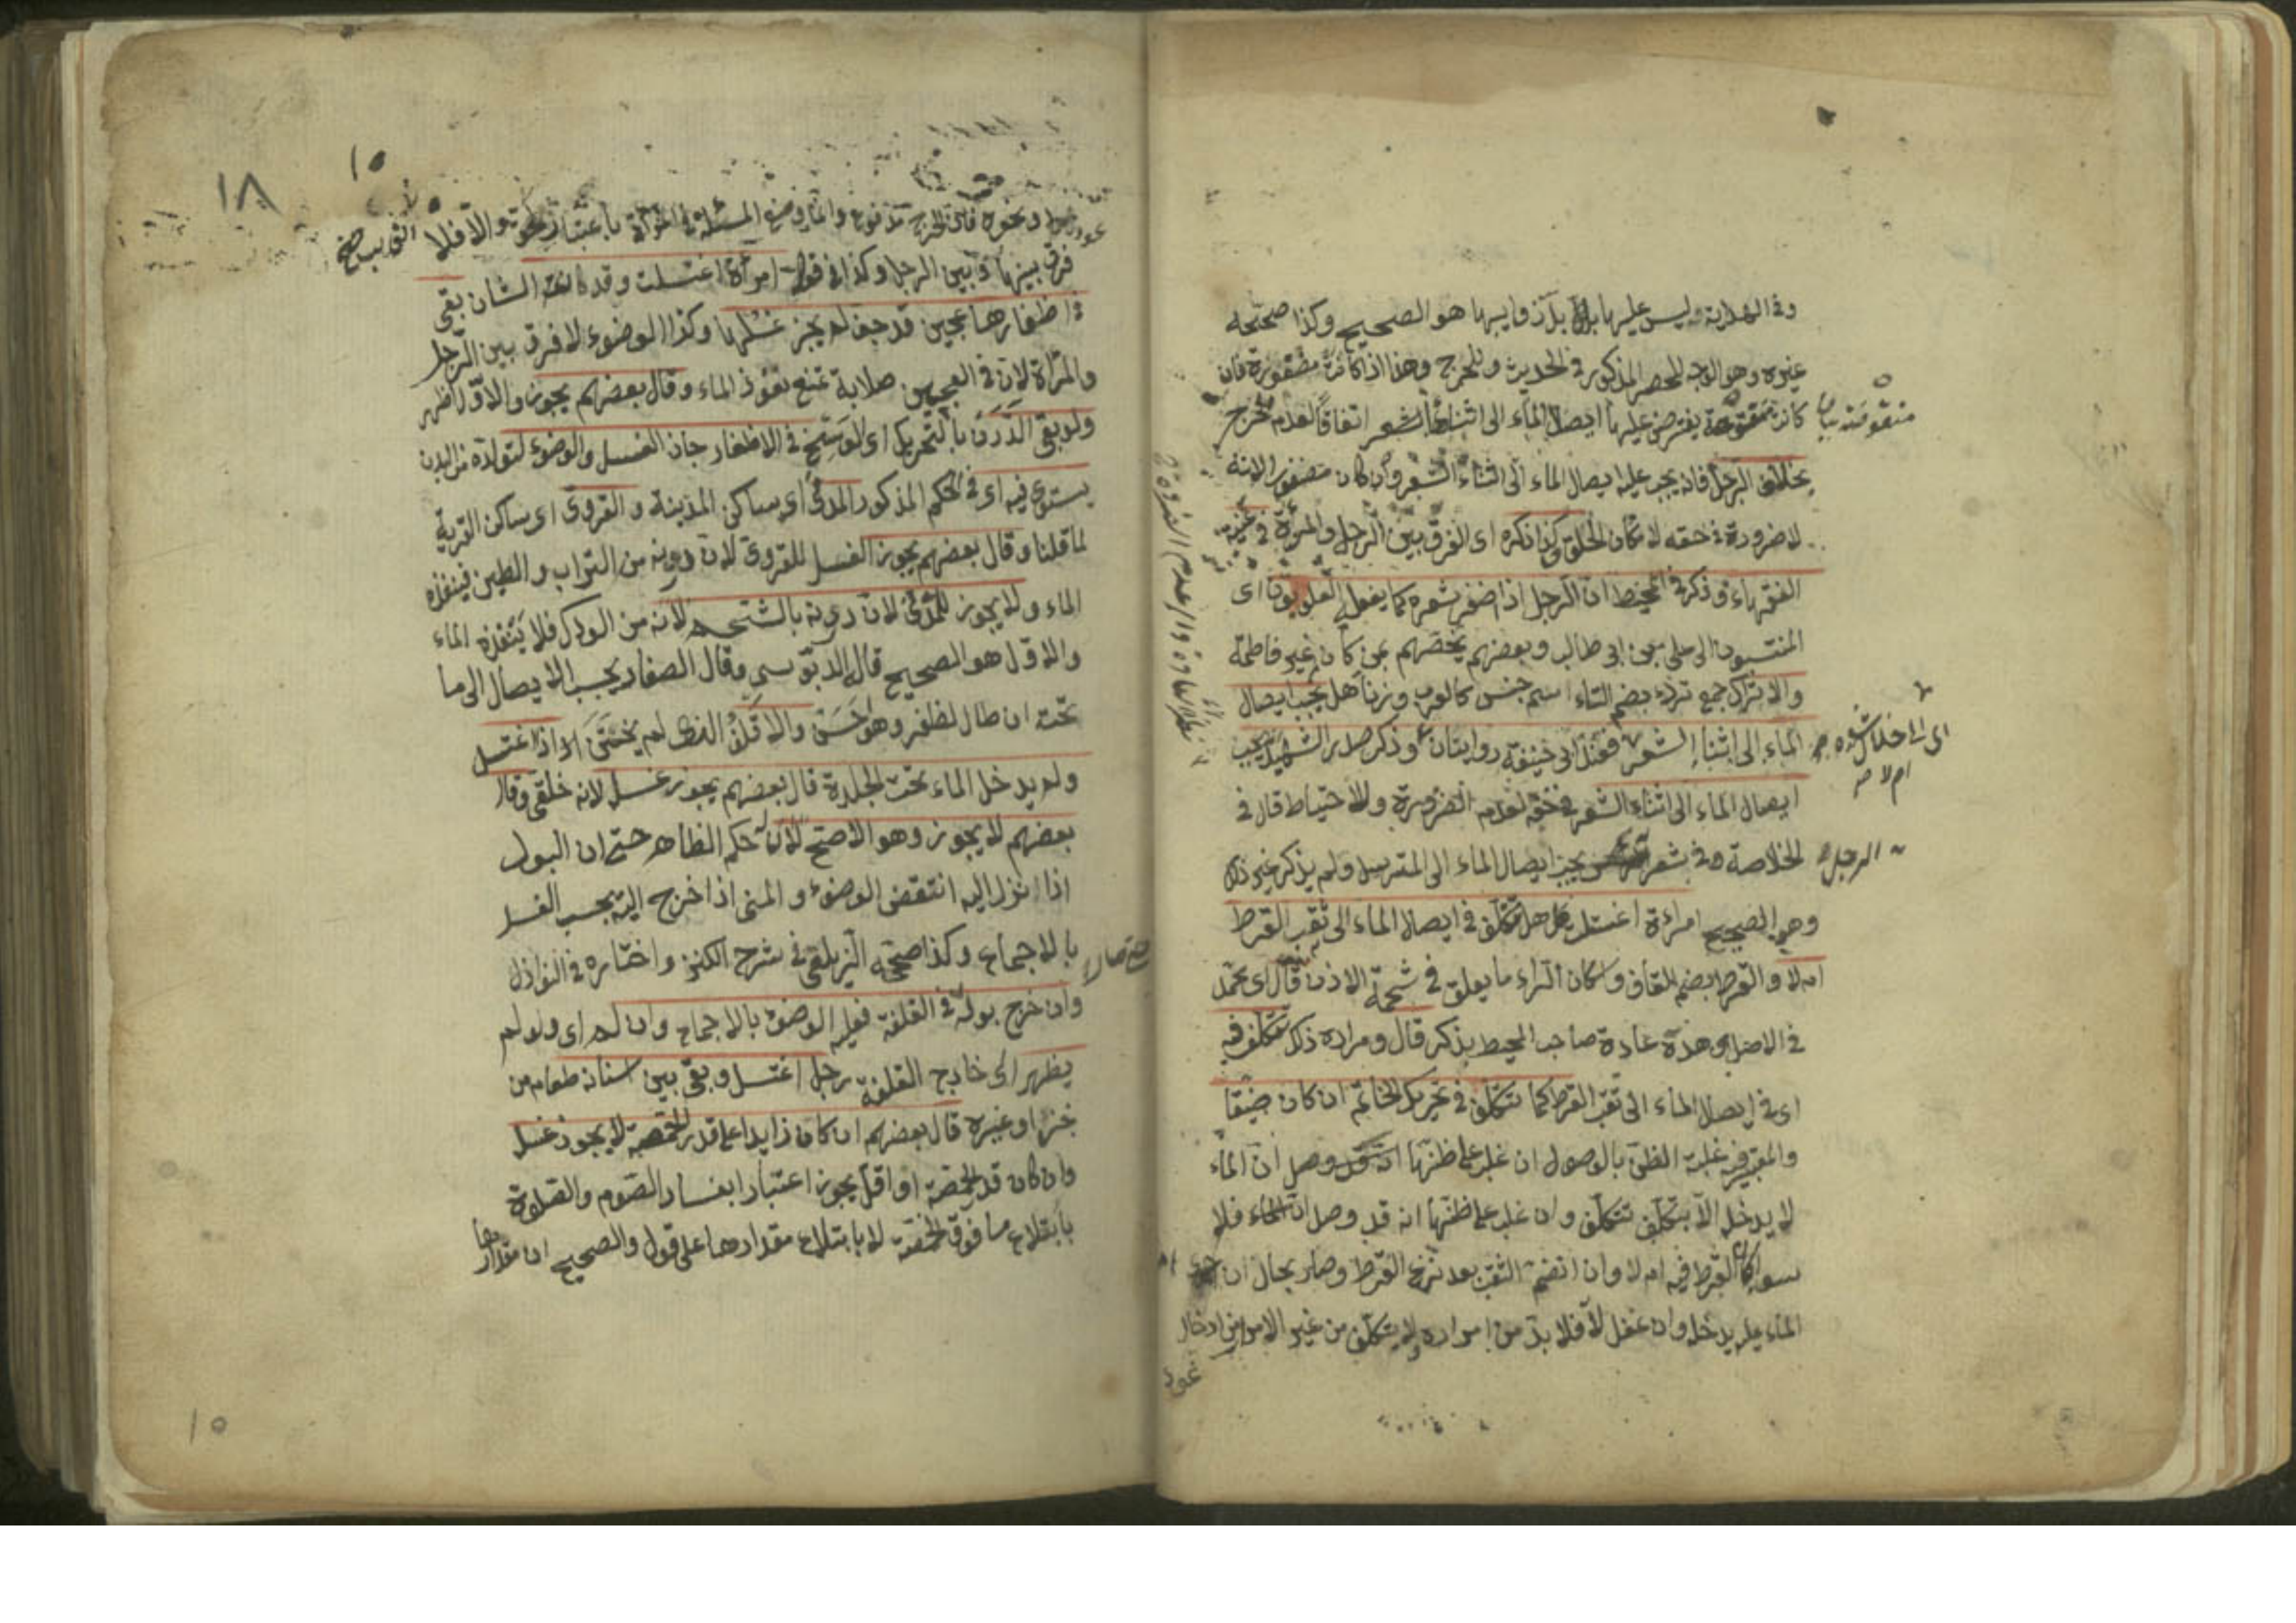 وفى الهداية وليس عليها بل ذوايبها هو الصحيح وكذا صححه
غيره وهو الوجه للحصر المذكور فى الحديث وللحرج وهذا اذا كانت مضفورة فان
كانت منقوضة يفترض عليها ايصال الماء الى اثناء الشعر اتفاقا لعدم الحرج
منقوضة
بخلاف الرجل فانه يجب عليه ايصال الماء الى اثناء الشعر وان كان مضفورا لانه
لا ضرورة فى حقه لامكان الحلق كذا ذكره اى الفرق بين الرجل والمرأة فى غنية
الفقهاء وذكر فى المحيط ان الرجل اذا ضفر شعره كما يفعله العلويون اى
المنتسبون الى على بن ابى طالب وبعضهم يخصهم بمن كان من غير فاطمة
والاتراك جمع ترك بضم التاء اسم جنس كالعرب وزنا هل يجب ايصال
الماء الى اثناء الشعر فعند ابى حنيفة روايتان وذكر صدر الشهيد يجب
الى اخلال شعره
ام لا
ايصال الماء الى اثناء الشعر فى حقه لعدم الضرورة وللاحتياط قال فى
الخلاصة وفى شعر يجب ايصال الماء الى المسترسل ولم يذكر غير ذلك
الرجل
وهو الصحيح امرءة اغتسلت هل تتكلف فى ايصال الماء الى ثقب القرط
ام لا والقرط بضم القاف واسكان الراء ما يعلق فى شحمة الاذن قال اى محمد
فى الاصل وهذه عادة صاحب المحيط يذكر قال ومراده ذلك تتكلف فيه
اى فى ايصال الماء الى ثقب القرط كما تتكلف فى تحريك الخاتم ان كان ضيقا
والمعتبر فيه غلبة الظن بالوصول ان غلب على ظنها ان الماء
لا يدخل الا بتكلف تتكلف وان غلب على ظنها انه قد وصل فلا
سواء كان القرط فيه ام لا وان انضم الثقب بعد نزع القرط وصار بحال ان
الماء عليه يدخله وان غفل لا فلا بد من امراره ولا يتكلف من غير الامرار من ادخال
عود
١٨
١٥
عود ونحوه فان الحرج مدفوع وانما وضع المسئلة فى المرأة باعتبار والا فلا
فرق بينها وبين الرجل وكذا فى قوله امرأة اغتسلت وقد كان الشان بقى
فى اظفارها عجين قد جف لم يجز غسلها وكذا الوضوء لا فرق بين الرجل
والمرأة لان فى العجين صلابة تمنع نفوذ الماء وقال بعضهم يجوز والاول اظهر
ولو بقى الدرن بالتحريك اى الوسخ فى الاظفار جاز الغسل والوضوء لتولده من البدن
يستوى فيه اى فى الحكم المذكور المدنى اى ساكن المدينة والقروى اى ساكن القرية
لما قلنا وقال بعضهم يجوز الغسل للقروى لان درنه من التراب والطين فينفذه
الماء ولا يجوز للمدنى لان درنه بالشحم لانه من الودك فلا ينفذه الماء
والاول هو الصحيح قال الدبوسى وقال الصفار يجب الايصال الى ما
تحته ان طال الظفر وهو حسن والاقلف الذى لم يختن اذا اغتسل
ولم يدخل الماء تحت الجلدة قال بعضهم يجوز غسله لانه خلقى وقال
بعضهم لا يجوز وهو الاصح لان له حكم الظاهر حتى ان البول
اذا نزل اليه انتقض الوضوء والمنى اذا خرج اليه يجب الغسل
بالاجماع وكذا صححه الزيلعى فى شرح الكنز واختاره فى النوازل
وان خرج بوله فى القلفة فعليه الوضوء بالاجماع وان لم اى ولو لم
يظهر الى خارج القلفة رجل اغتسل وبقى بين اسنانه طعام من
خبز او غيره قال بعضهم ان كان زايدا على قدر الحمصة لا يجوز غسله
وان كان قدر الحمصة او اقل يجوز اعتبارا بفساد الصوم والصلوة
بابتلاع ما فوق الحمصة لا بابتلاع مقدارها على قول والصحيح ان مقدارها
١٥